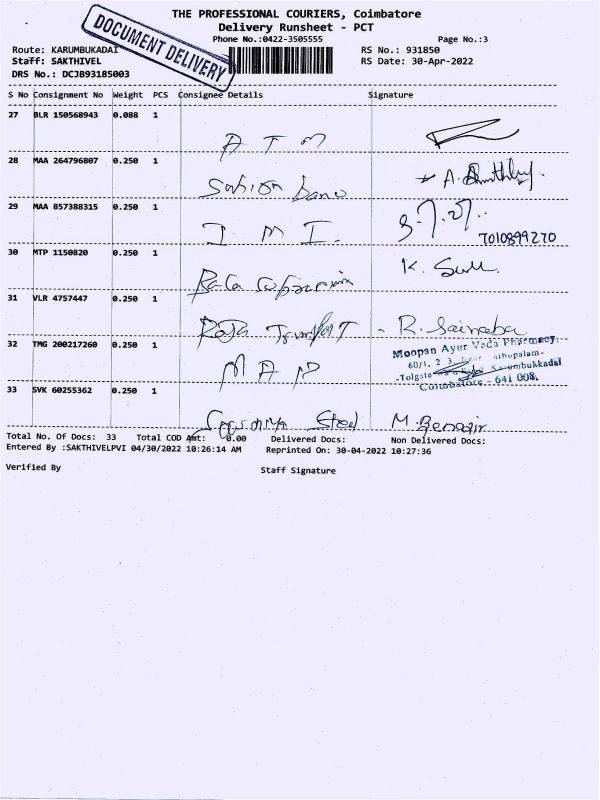 THE PROFESSIONAL COURIERS, Coimbatore
Delivery Runsheet - PCT
Phone No.:0422-3505555
Page No.:3
DOCUMENT DELIVERY
Route: KARUMBUKADAI
RS No.: 931850
Staff: SAKTHIVEL
RS Date: 30-Apr-2022
DRS No.: DCJB93185003
S No Consignment No Weight PCS Consignee Details Signature
27 BLR 150568943 0.088 1
A T M
28 MAA 264796807 0.250 1
29 MAA 857388315 0.250 1
I M I.
7010899270
30 MTP 1150820 0.250 1
31 VLR 4757447 0.250 1
Raja Transport - R. Sainaba
32 TMG 200217260 0.250 1
M A P
Moopan Ayur Veda Pharmacy,
60/1, 2 3
Karumbukkadai
Coimbatore - 641 008.
33 SVK 60255362 0.250 1
Steel M. Benazir
Total No. Of Docs: 33 Total COD Amt: 0.00 Delivered Docs: Non Delivered Docs:
Entered By :SAKTHIVELPVI 04/30/2022 10:26:14 AM Reprinted On: 30-04-2022 10:27:36
Verified By
Staff Signature